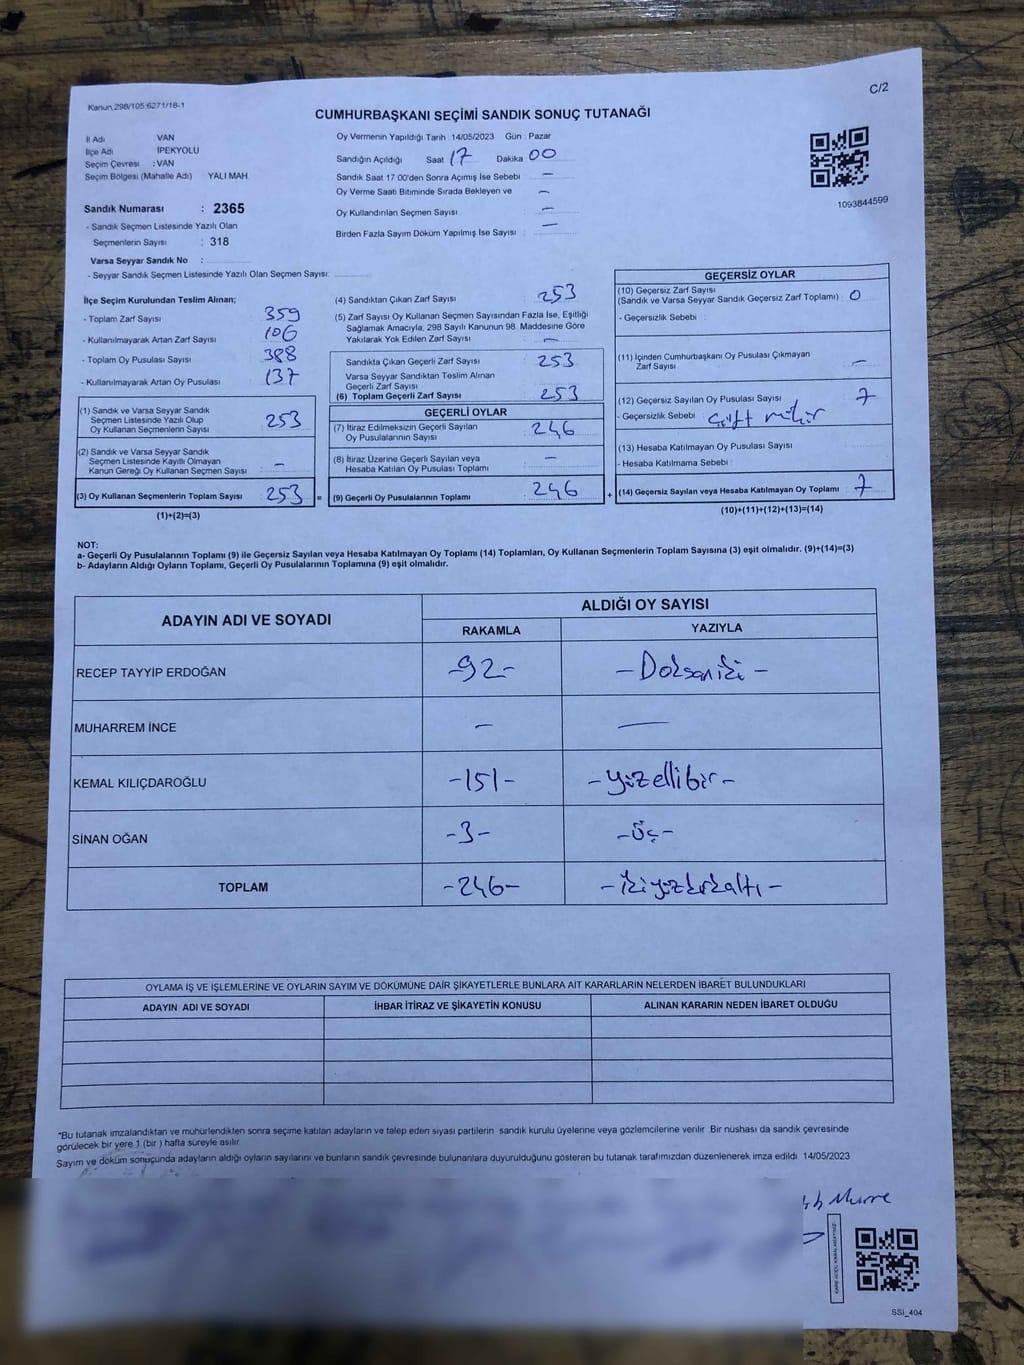 Kanun 298/105 6271/18-1
C/2
CUMHURBAŞKANI SEÇİMİ SANDIK SONUÇ TUTANAĞI
İl Adı VAN
İlçe Adı İPEKYOLU
Seçim Çevresi : VAN
Seçim Bölgesi (Mahalle Adı) YALI MAH.
Sandık Numarası : 2365
- Sandık Seçmen Listesinde Yazılı Olan
Seçmenlerin Sayısı : 318
Varsa Seyyar Sandık No :
- Seyyar Sandık Seçmen Listesinde Yazılı Olan Seçmen Sayısı:
Oy Vermenin Yapıldığı Tarih 14/05/2023 Gün : Pazar
Sandığın Açıldığı Saat 17 Dakika 00
Sandık Saat 17 00'den Sonra Açımış İse Sebebi —
Oy Verme Saati Bitiminde Sırada Bekleyen ve —
Oy Kullandırılan Seçmen Sayısı —
Birden Fazla Sayım Döküm Yapılmış İse Sayısı : —
1093844599
İlçe Seçim Kurulundan Teslim Alınan;
- Toplam Zarf Sayısı 359
- Kullanılmayarak Artan Zarf Sayısı 106
- Toplam Oy Pusulası Sayısı 388
- Kullanılmayarak Artan Oy Pusulası 137
(1) Sandık ve Varsa Seyyar Sandık
Seçmen Listesinde Yazılı Olup
Oy Kullanan Seçmenlerin Sayısı 253
(2) Sandık ve Varsa Seyyar Sandık
Seçmen Listesinde Kayıtlı Olmayan
Kanun Gereği Oy Kullanan Seçmen Sayısı —
(3) Oy Kullanan Seçmenlerin Toplam Sayısı 253 =
(1)+(2)=(3)
(4) Sandıktan Çıkan Zarf Sayısı 253
(5) Zarf Sayısı Oy Kullanan Seçmen Sayısından Fazla İse, Eşitliği
Sağlamak Amacıyla, 298 Sayılı Kanunun 98. Maddesine Göre
Yakılarak Yok Edilen Zarf Sayısı —
Sandıkta Çıkan Geçerli Zarf Sayısı 253
Varsa Seyyar Sandıktan Teslim Alınan
Geçerli Zarf Sayısı
(6) Toplam Geçerli Zarf Sayısı 253
GEÇERLİ OYLAR
(7) İtiraz Edilmeksizin Geçerli Sayılan
Oy Pusulalarının Sayısı 246
(8) İtiraz Üzerine Geçerli Sayılan veya
Hesaba Katılan Oy Pusulası Toplamı —
(9) Geçerli Oy Pusulalarının Toplamı 246 +
GEÇERSİZ OYLAR
(10) Geçersiz Zarf Sayısı
(Sandık ve Varsa Seyyar Sandık Geçersiz Zarf Toplamı) : 0
- Geçersizlik Sebebi :
(11) İçinden Cumhurbaşkanı Oy Pusulası Çıkmayan
Zarf Sayısı —
(12) Geçersiz Sayılan Oy Pusulası Sayısı 7
- Geçersizlik Sebebi : Çift mühür
(13) Hesaba Katılmayan Oy Pusulası Sayısı
- Hesaba Katılmama Sebebi
(14) Geçersiz Sayılan veya Hesaba Katılmayan Oy Toplamı 7
(10)+(11)+(12)+(13)=(14)
NOT:
a- Geçerli Oy Pusulalarının Toplamı (9) ile Geçersiz Sayılan veya Hesaba Katılmayan Oy Toplamı (14) Toplamları, Oy Kullanan Seçmenlerin Toplam Sayısına (3) eşit olmalıdır. (9)+(14)=(3)
b- Adayların Aldığı Oyların Toplamı, Geçerli Oy Pusulalarının Toplamına (9) eşit olmalıdır.
ADAYIN ADI VE SOYADI
ALDIĞI OY SAYISI
RAKAMLA YAZIYLA
RECEP TAYYİP ERDOĞAN -92- -Doksaniki-
MUHARREM İNCE — —
KEMAL KILIÇDAROĞLU -151- -yüzellibir-
SİNAN OĞAN -3- -Üç-
TOPLAM -246- -ikiyüzkırkaltı-
OYLAMA İŞ VE İŞLEMLERİNE VE OYLARIN SAYIM VE DÖKÜMÜNE DAİR ŞİKAYETLERLE BUNLARA AİT KARARLARIN NELERDEN İBARET BULUNDUKLARI
ADAYIN ADI VE SOYADI İHBAR İTİRAZ VE ŞİKAYETİN KONUSU ALINAN KARARIN NEDEN İBARET OLDUĞU
*Bu tutanak imzalandıktan ve mühürlendikten sonra seçime katılan adayların ve talep eden siyasi partilerin sandık kurulu üyelerine veya gözlemcilerine verilir Bir nüshası da sandık çevresinde
görülecek bir yere 1 (bir ) hafta süreyle asılır
Sayım ve döküm sonucunda adayların aldığı oyların sayılarını ve bunların sandık çevresinde bulunanlara duyurulduğunu gösteren bu tutanak tarafımızdan düzenlenerek imza edildi 14/05/2023
SSI_404